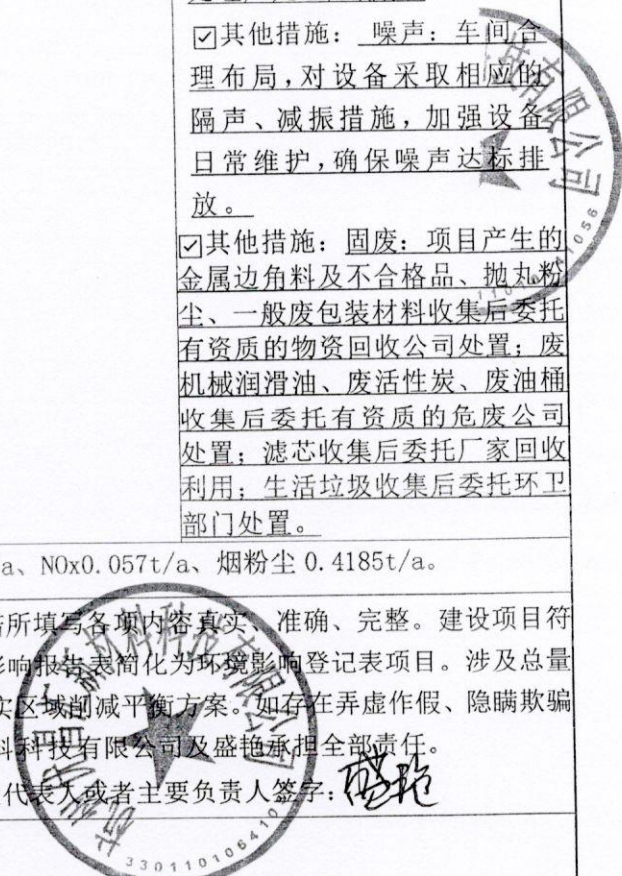 ☑其他措施： 噪声：车间合
理布局，对设备采取相应的
隔声、减振措施，加强设备
日常维护，确保噪声达标排
放。
☑其他措施：固废：项目产生的
金属边角料及不合格品、抛丸粉
尘、一般废包装材料收集后委托
有资质的物资回收公司处置；废
机械润滑油、废活性炭、废油桶
收集后委托有资质的危废公司
处置；滤芯收集后委托厂家回收
利用；生活垃圾收集后委托环卫
部门处置。
a、NOx0.057t/a、烟粉尘 0.4185t/a。
所填写各项内容真实、准确、完整。建设项目符
影响报告表简化为环境影响登记表项目。涉及总量
实区域削减平衡方案。如存在弄虚作假、隐瞒欺骗
料科技有限公司及盛艳承担全部责任。
代表人或者主要负责人签字：盛艳
科技有限公司
有限公司